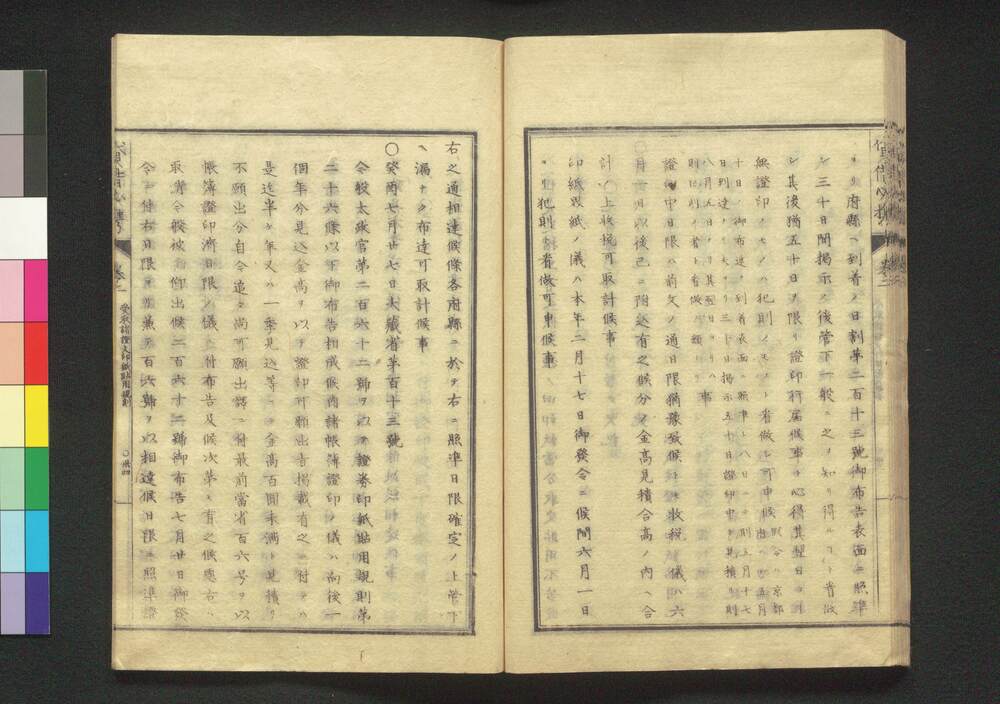 府縣ヘ到着ノ日割第二百十三號御布告表面ニ照準
シ三十日間掲示ノ後管下一般ニ之ヲ知リ得ル
シ其後猶五十日ヲ限リ證印行届候事ト心得其翌日ヨリ
無證印ノモノハ犯則
證印申日限ハ前文ノ通日限猶豫致候ヘ共收税ノ儀ハ六
月一日以後已ニ陷込有之候分ハ金高見積合高ノ内ヘ合
計シ上收税可取計候事
印紙界紙ノ儀ハ本年二月十七日御發令ニ候間六月一日
ヨリ犯則ト看做可申候事
右之通相達候條各府縣ニ於テ右ニ照準日限確定ノ上管下
ヘ漏ナク布達可取計候事
〇癸酉七月廿七日大藏省第百十三號
今般太政官第二百六十二號ヲ以テ證券印紙貼用規則第
二十六條以下御布告相成候内諸帳簿證印ノ儀ハ向後一
個年分見込金高ヲ以テ證印可願出旨掲載有之ニ付テハ
是迄半ヶ年又ハ一季見込等ニテ金高百圓未滿ト見積リ
不願出分自今追々尚可願出都ニ付最前當省百六号ヲ以
帳簿證印濟日限ノ儀ニ付布告及候次第モ有之候處右ハ
取消今般被仰出候二百六十二號御布告七月廿日御發
令ニ付右日限ヲ以兼テ百六號ヲ以相達候日限ニ照準證
貸借必携 卷之二
受取諸證文印紙貼用規則
〇卅四